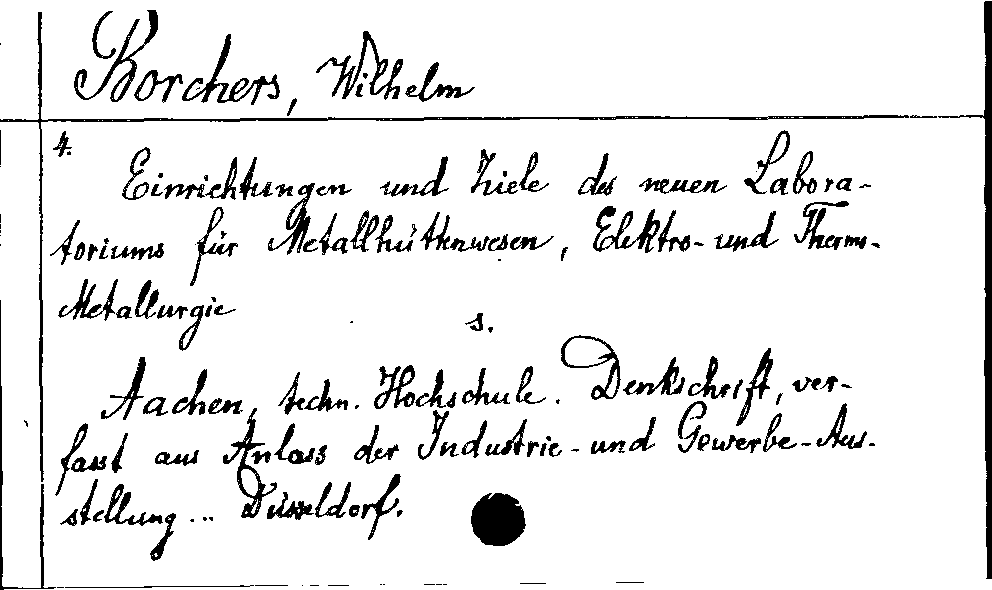 Borchers, Wilhelm
4.
Einrichtungen und Ziele des neuen Labora-
toriums für Metallhüttenwesen, Elektro- und Thermo-
Metallurgie
s.
Aachen, techn. Hochschule. Denkschrift, ver-
fasst aus Anlass der Industrie- und Gewerbe-Aus-
stellung... Düsseldorf.